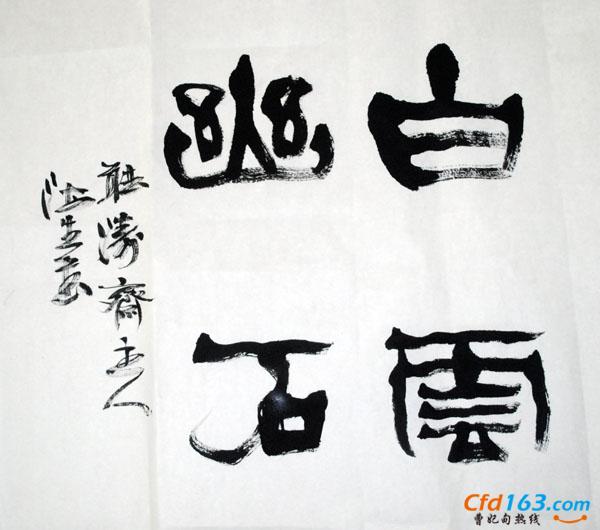 白雲
幽石
濤齋主人
生
Cfd163.com
曹妃甸热线